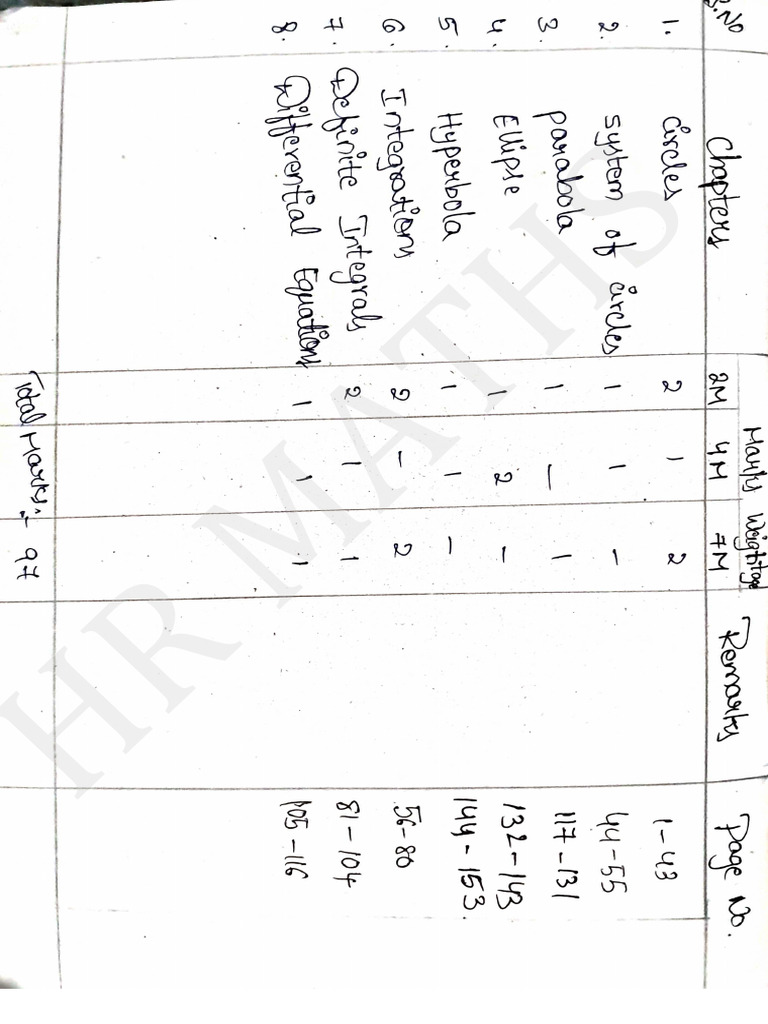 S.No Chapters Marks Weightage Remarks Page No.
2M 4M 7M
1. circles 2 1 2 1-43
2. system of circles 1 1 - 44-55
3. parabola 1 - 1 117-131
4. Ellipse 1 2 - 132-143
5. Hyperbola 1 1 - 144-153.
6. Integrations 2 - 2 56-80
7. Definite Integrals 2 1 1 81-104
8. Differential Equations 1 1 1 105-116
Total Marks:- 97
HR MATHS